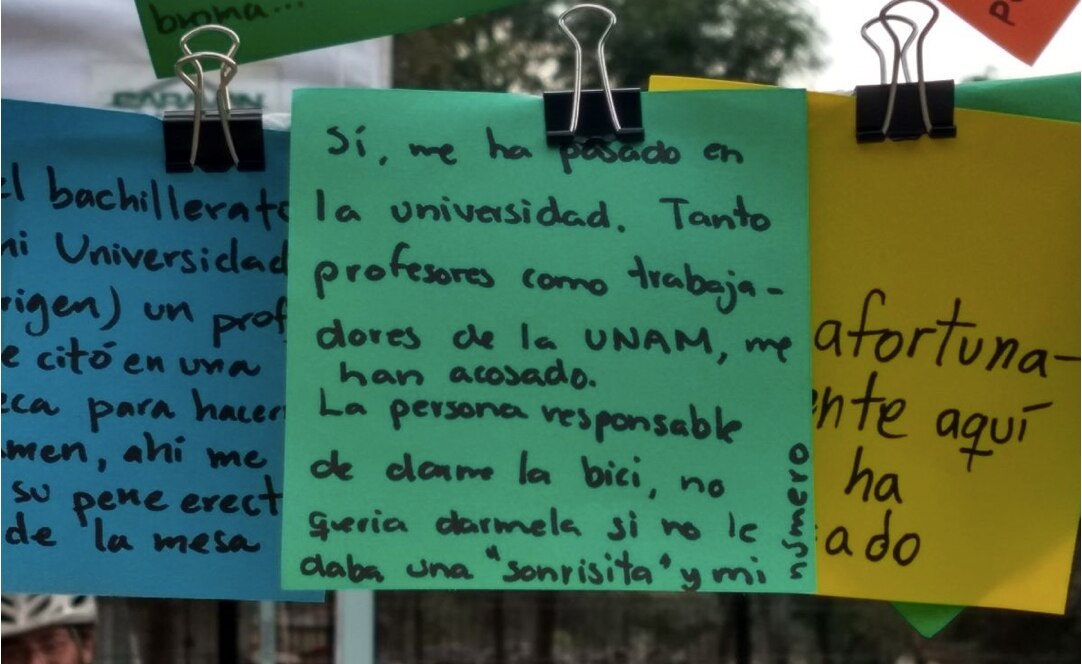 broma...
el bachillerato
mi Universidad
rigen) un prof
e citó en una
eca para hacer
men, ahí me
su pene erect
de la mesa
Sí, me ha pasado en
la universidad. Tanto
profesores como trabaja-
dores de la UNAM, me
han acosado.
La persona responsable
de darme la bici, no
queria darmela si no le
daba una "sonrisita" y mi
número
afortuna-
ente aquí
ha
ado